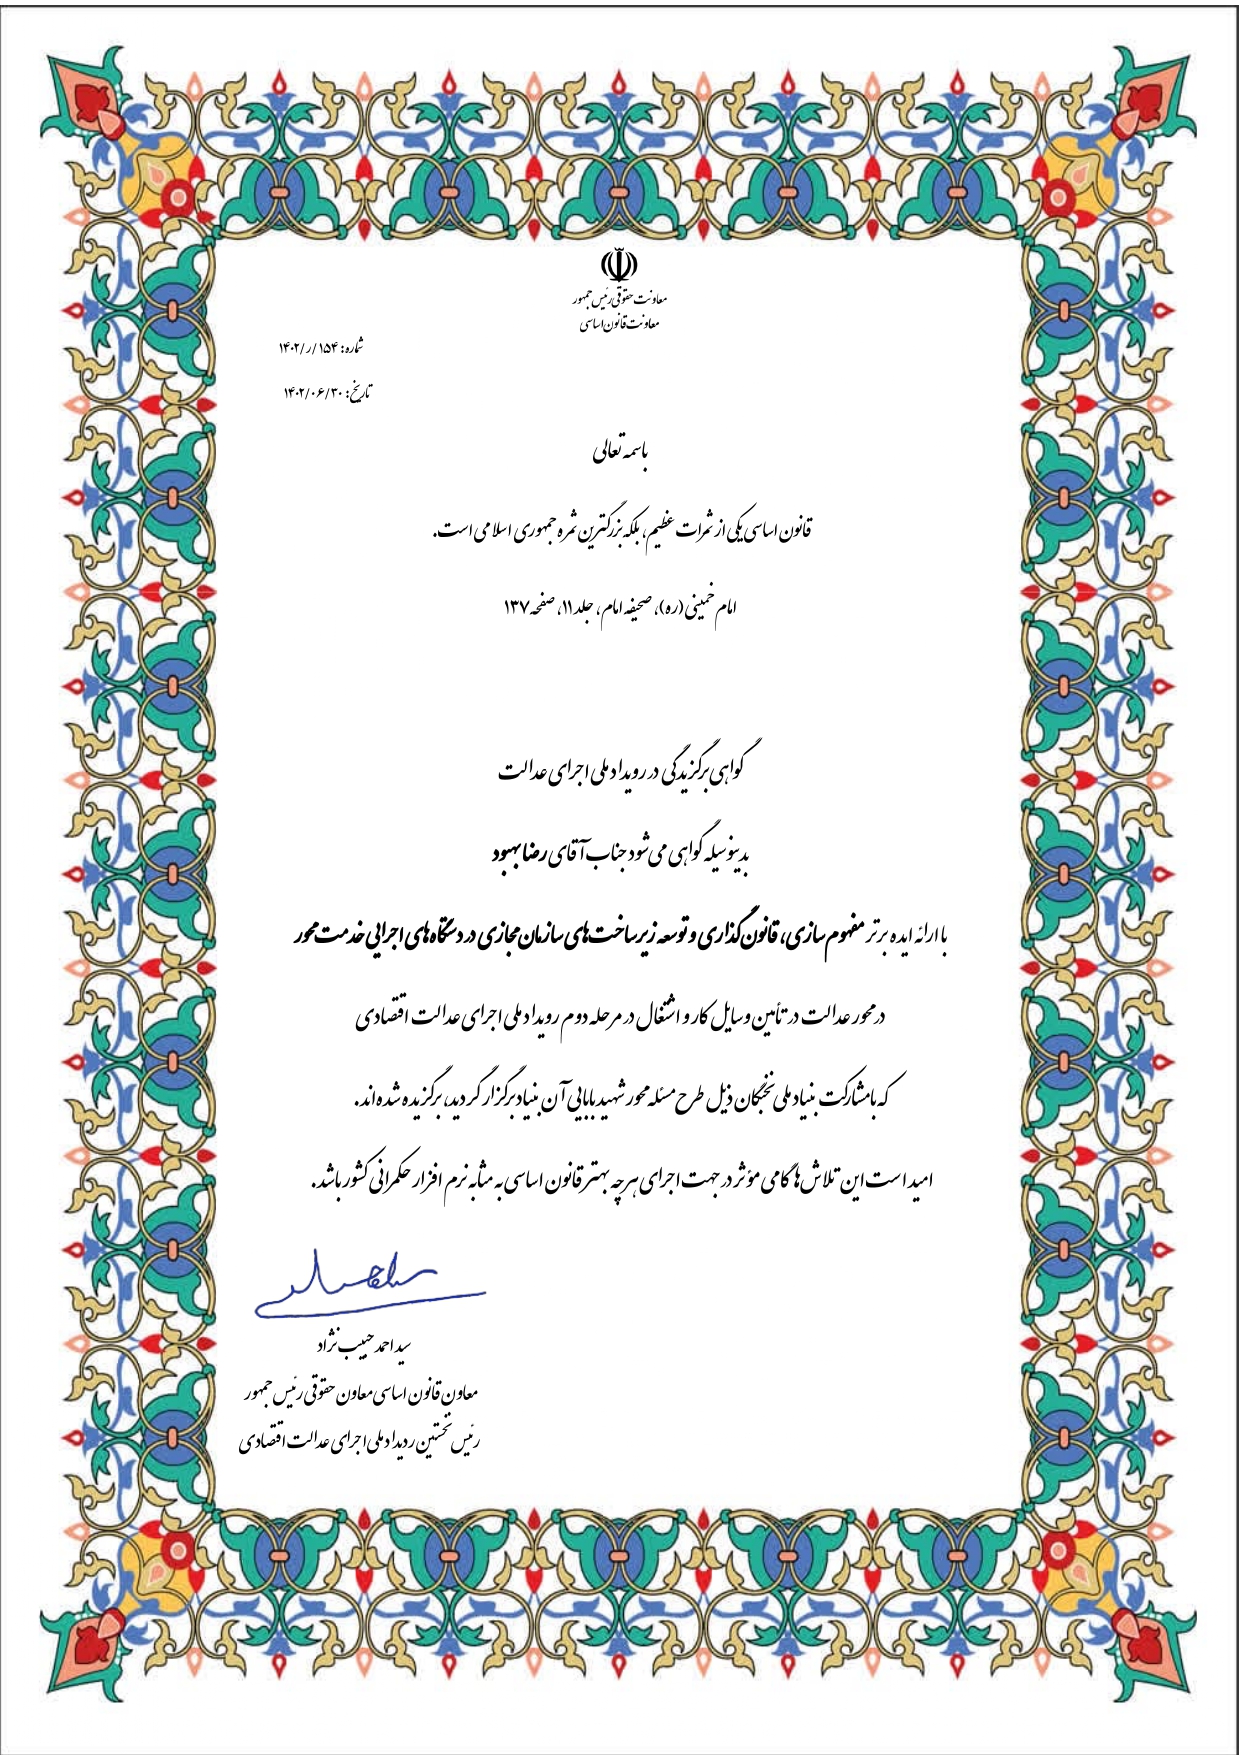 معاونت حقوقی رئیس جمهور
معاونت قانون اساسی
شماره: ۱۵۴/ر/۱۴۰۲
تاریخ: ۱۴۰۲/۰۶/۳۰
باسمه تعالی
قانون اساسی یکی از ثمرات عظیم، بلکه بزرگترین ثمره جمهوری اسلامی است.
امام خمینی (ره)، صحیفه امام، جلد ۱۱، صفحه ۱۳۷
گواهی برگزیدگی در رویداد ملی اجرای عدالت
بدینوسیله گواهی می شود جناب آقای رضا بهبود
با ارائه ایده برتر مفهوم سازی، قانون گذاری و توسعه زیرساخت های سازمان مجازی در دستگاه های اجرایی خدمت محور
در محور عدالت در تأمین وسایل کار و اشتغال در مرحله دوم رویداد ملی اجرای عدالت اقتصادی
که با مشارکت بنیاد ملی نخبگان ذیل طرح مسئله محور شهید بابایی آن بنیاد برگزار گردید، برگزیده شده اند.
امید است این تلاش ها گامی مؤثر در جهت اجرای هرچه بهتر قانون اساسی به مثابه نرم افزار حکمرانی کشور باشد.
سید احمد حبیب نژاد
معاون قانون اساسی معاون حقوقی رئیس جمهور
رئیس نخستین رویداد ملی اجرای عدالت اقتصادی